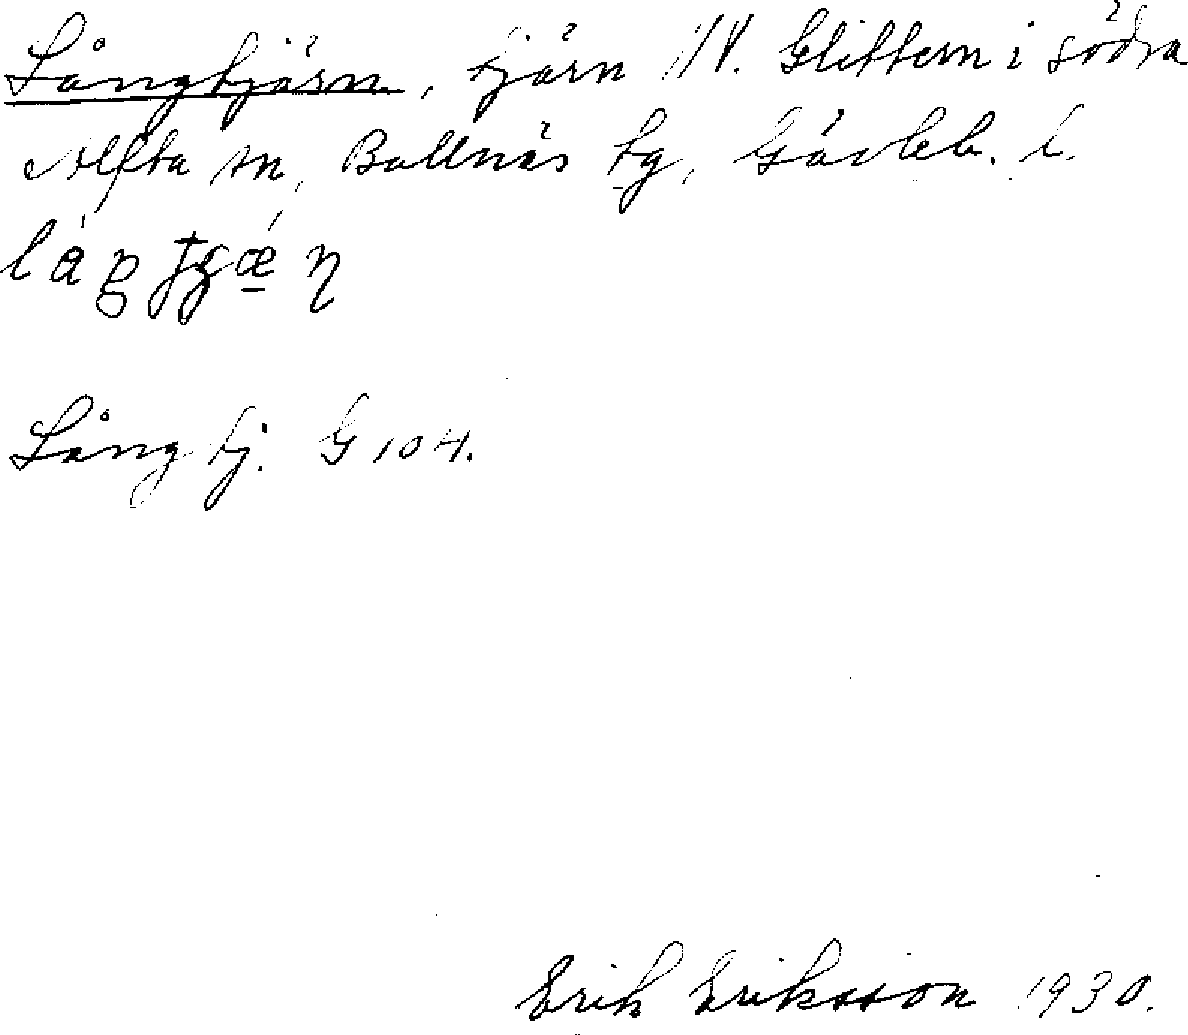 Långtjärn, tjärn NV. Glittern i södra
Alfta sn, Bollnäs tg, Gävleb. l.
Långtj. G 104.
Erik Eriksson 1930.